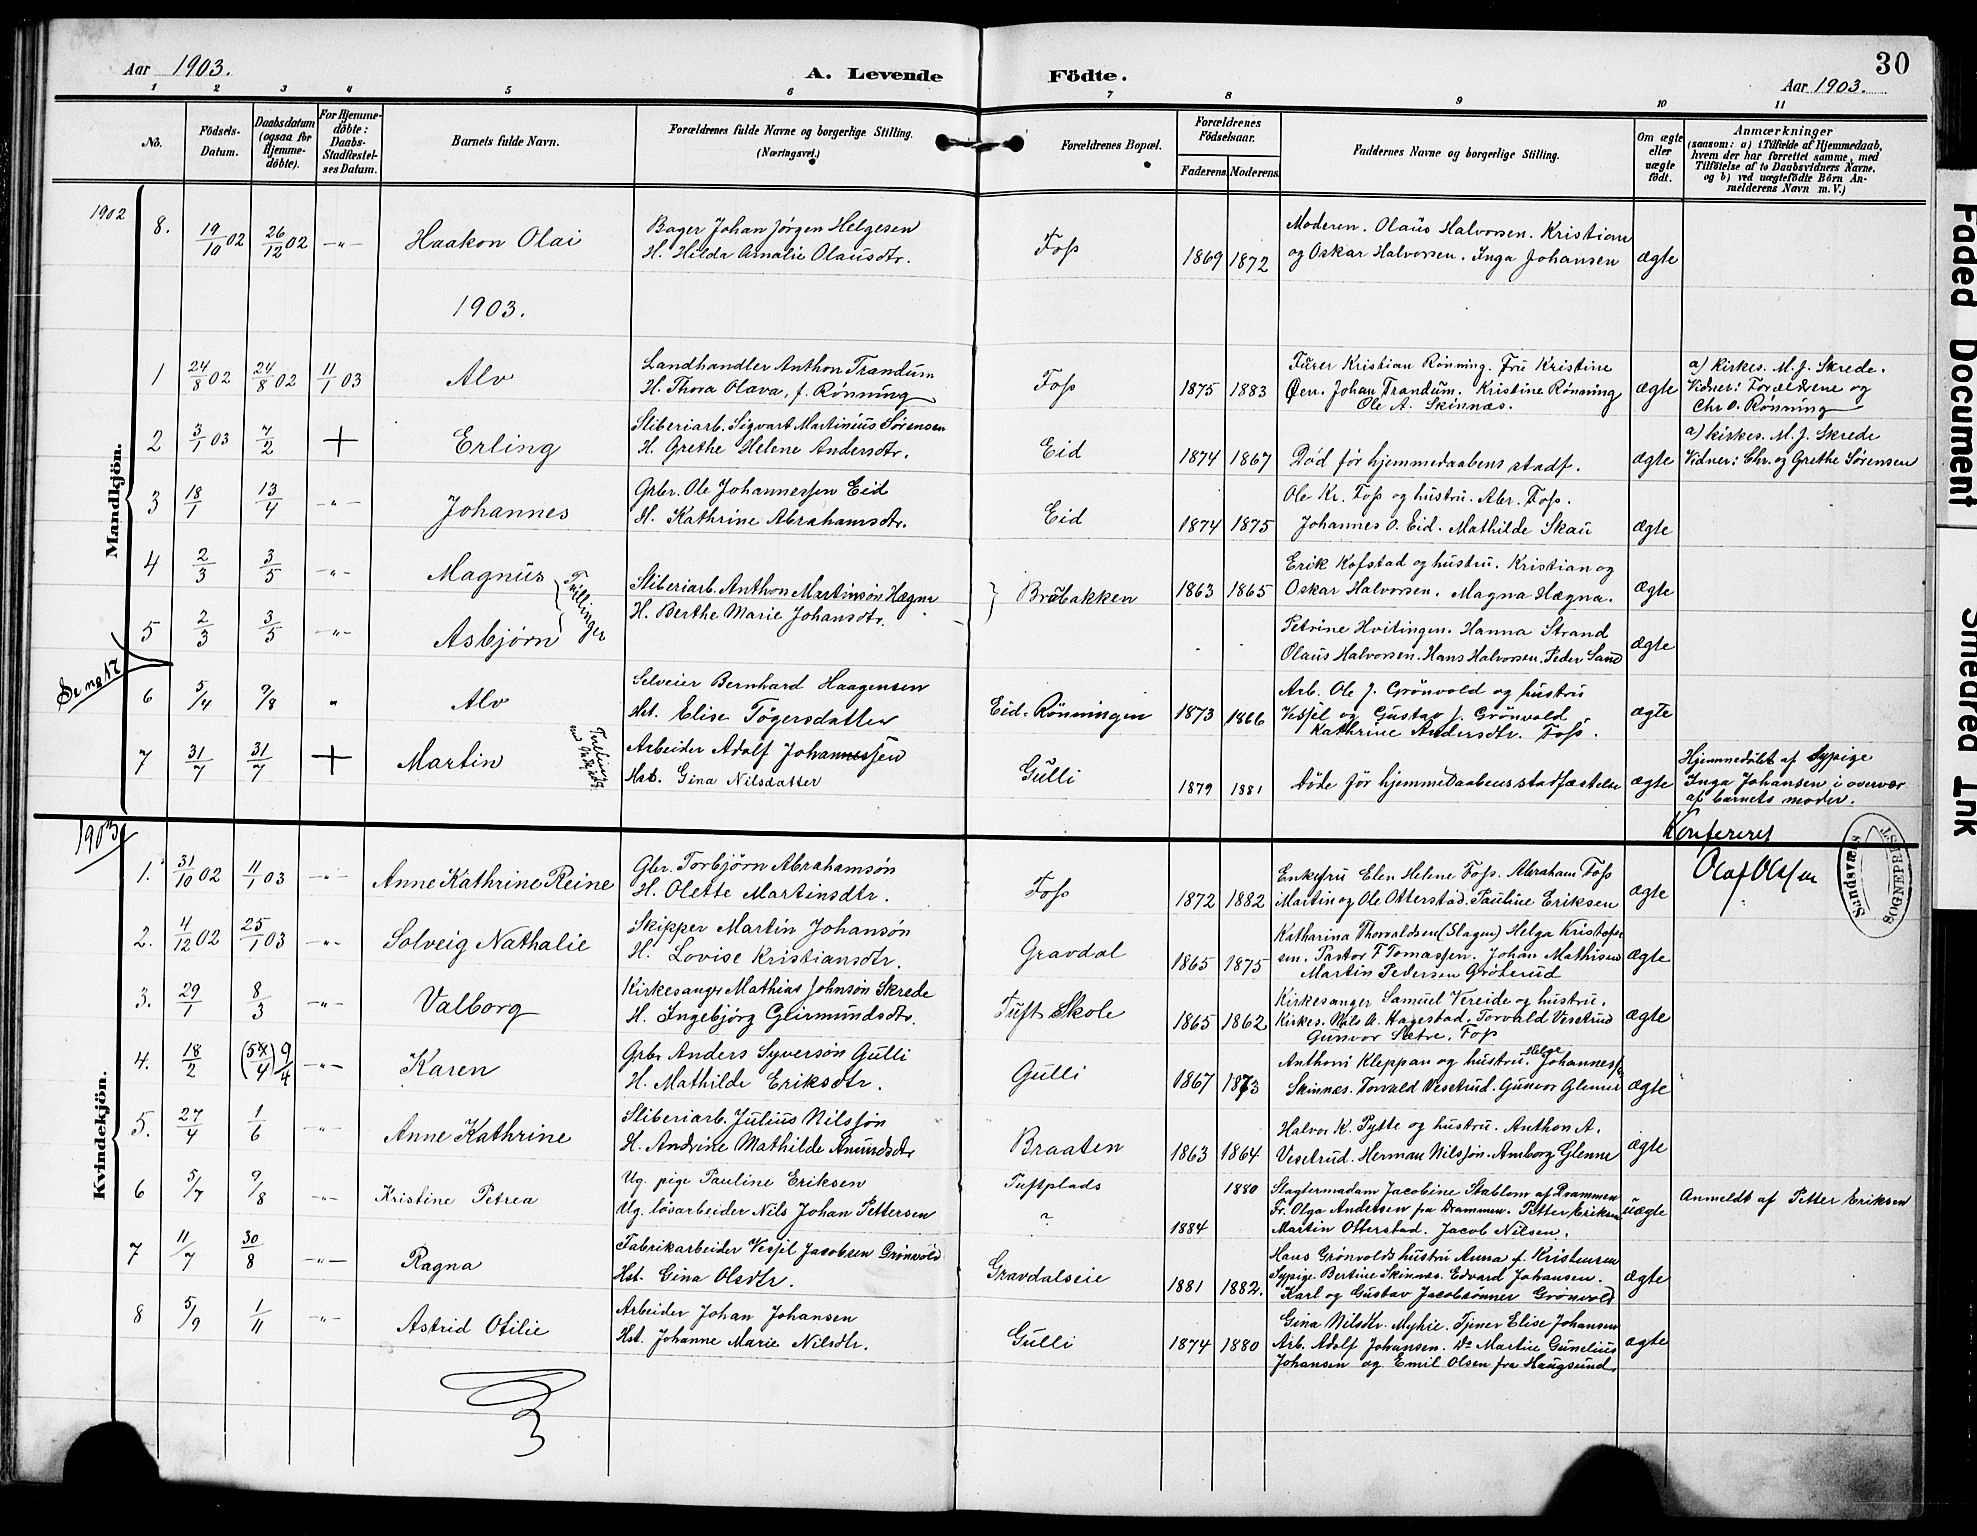 30
Aar 1903.
A. Levende Födte.
Aar 1903.
1 2 3 4 5 6 7 8 9 10 11
No.
Födsels-Datum.
Daabsdatum (ogsaa for Hjemmedöbte).
For Hjemmedöbte: Daabs-Stadfæstelses Datum.
Barnets fulde Navn.
Forældrenes fulde Navne og borgerlige Stilling. (Næringsvei.)
Forældrenes Bopæl.
Forældrenes Födselsaar.
Faderens Moderens
Faddernes Navne og borgerlige Stilling.
Om ægte eller uægte födt.
Anmærkninger
(saasom: a) i Tilfælde af Hjemmedaab,
hvem der har forrettet samme, med
Tilföielse af to Daabsvidners Navne,
og b) ved uægtefödte Börn An-
melderens Navn m. V.)
Mandkjön.
1902
8. 19/10 02 26/12 02 -"- Haakon Olai
Bager Johan Jørgen Helgesen
H. Hilda Amalie Olausdtr.
Foss 1869 1872
Moderen. Olaus Halvorsen. Kristian
og Oskar Halvorsen. Inga Johansen
ægte
1903.
1 24/8 02 24/8 02 11/1 03 Alv
Landhandler Anthon Trandum
H. Thora Olava, f. Rønning
Foss 1875 1883
Furer Kristian Rønning. Fru Kristine
Øen. Johan Trandum. Kristine Rønning
Ole A. Skinnæs.
ægte
a) Kirkes. M. J. Skrede.
Vidner: Forældrene og
Chr O. Rønning
2 3/1 03 7/2 + Erling
Sliberiarb. Sigvart Martinius Sørensen
H. Grethe Helene Andersdtr.
Eid 1874 1867
Død før hjemmedaabens stadf.
ægte
a) kirkes. M. J. Skrede
Vidner: Chr. og Grethe Sørensen
3 18/1 13/4 -"- Johannes
Gbr. Ole Johannessen Eid
H. Kathrine Abrahamsdtr.
Eid 1874 1875
Ole Kr. Foss og hustru. Abr. Foss.
Johannes O. Eid. Mathilde Skau
ægte
4 2/3 3/5 -"- Magnus
Tvillinger
Sliberiarb. Anthon Martinsøn Hægna
H. Berthe Marie Johansdtr.
Bråbakken 1863 1865
Erik Kofstad og hustru. Kristian og
Oskar Halvorsen. Magna Hægna.
ægte
5 2/3 3/5 -"- Asbjørn
Petrine Hvitingen. Hanna Strand
Olaus Halvorsen. Hans Halvorsen. Peder Sand
ægte
6 5/4 9/8 " Alv
Selveier Bernhard Haagensen
Hst. Elise Tögersdatter
Eid-Rønningen 1873 1866
Arb. Ole J. Grönvold og hustru
Vessel og Gustav J. Grönvold
Kathrine Andersdtr. Foss.
ægte
7 31/7 31/7 + Martin
Arbeider Adolf Johannessen
Hst. Gina Nilsdatter
Gulli 1879 1881
Døde før hjemmedaabens stadfæstelse
ægte
Hjemmedöbt af Sypige
Inga Johansen i overvær
af barnets moder.
Konfereret
Olaf Olssen
SOGNEPREST
Sandsvær
Kvindekjön.
1903
1. 31/10 02 11/1 03 -"- Anne Kathrine Reine
Gbr. Torbjørn Abrahamsøn
H. Olette Martinsdtr.
Foss 1872 1882
Enkefru Elen Helene Foss. Abraham Foss
Martin og Ole Otterstad. Pauline Eriksen
ægte
2. 4/12 02 25/1 03 -"- Solveig Nathalie
Skipper Martin Johansøn
H. Lovise Kristiansdtr.
Gravdal 1865 1875
Katharina Thorvaldsen (Slagen) Helga Kristofer
sen. Pastor F Tomassen. Johan Mathisen
Martin Pedersen Gröterud
ægte
3. 29/1 8/3 -"- Valborg
Kirkesanger Mathias Johnsøn Skrede
H. Ingebjörg Geirmundsdtr.
Tuft Skole 1865 1862
Kirkesanger Samuel Vereide og hustru.
Kirkes. Nils A. Hagestad. Torvald Vesetrud
Gunvor Sætre. Foss
ægte
4. 18/2 9/4 -"- Karen
Gbr Anders Syversøn Gulli
H. Mathilde Eriksdtr.
Gulli 1867 1873
Anthon Kleppan og hustru. Helge Johannessen
Skinnæs. Torvald Vesetrud. Gunvor Glenne
ægte
5. 27/4 1/6 -"- Anne Kathrine
Sliberiarb. Julius Nilssøn
H. Andrine Mathilde Amundsdtr
Braaten 1863 1864
Halvor K. Pytte og hustru. Anthon A.
Vesetrud. Herman Nilssøn. Amborg Glenne
ægte
6 5/7 9/8 -"- Kristine Petrea
Ug. pige Pauline Eriksen
Ug. løsarbeider Nils Johan Pettersen
Tuftplads
?
1884 1880
Slagtermadam Jacobine Stablom af Drammen
Fr. Olga Andersen fra Drammen. Petter Eriksen
Martin Otterstad. Jacob Nilsen.
uægte
Anmeldt af Petter Eriksen
7 11/7 30/8 -"- Ragna
Fabrikarbeider Vessel Jacobsen Grönvold
Hst. Gina Olsdtr.
Gravdalseie 1881 1882.
Hans Grönvolds hustru Anna f. Kristensen
Sypige Bertine Skinnæs. Edvard Johansen.
Karl og Gustav Jacobsønner Grönvold
ægte
8 5/9 1/11 -"- Astrid Otilie
Arbeider Johan Johansen
Hst. Johanne Marie Nilsdtr.
Gulli 1874 1880
Gina Nilsdtr. Myhre. Tjener Elise Johansen
Arb. Adolf Johansen. Do Martin Gunelius
Johansen og Emil Olsen fra Haugsund
ægte
Faded Document
Smeared Ink